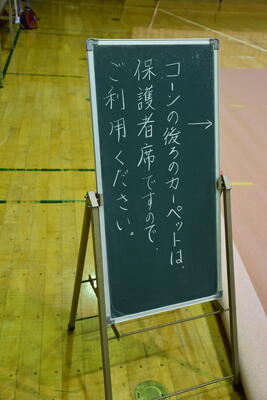 コーンの後ろのカーペットは、
保護者席ですので、
ご利用ください。
→